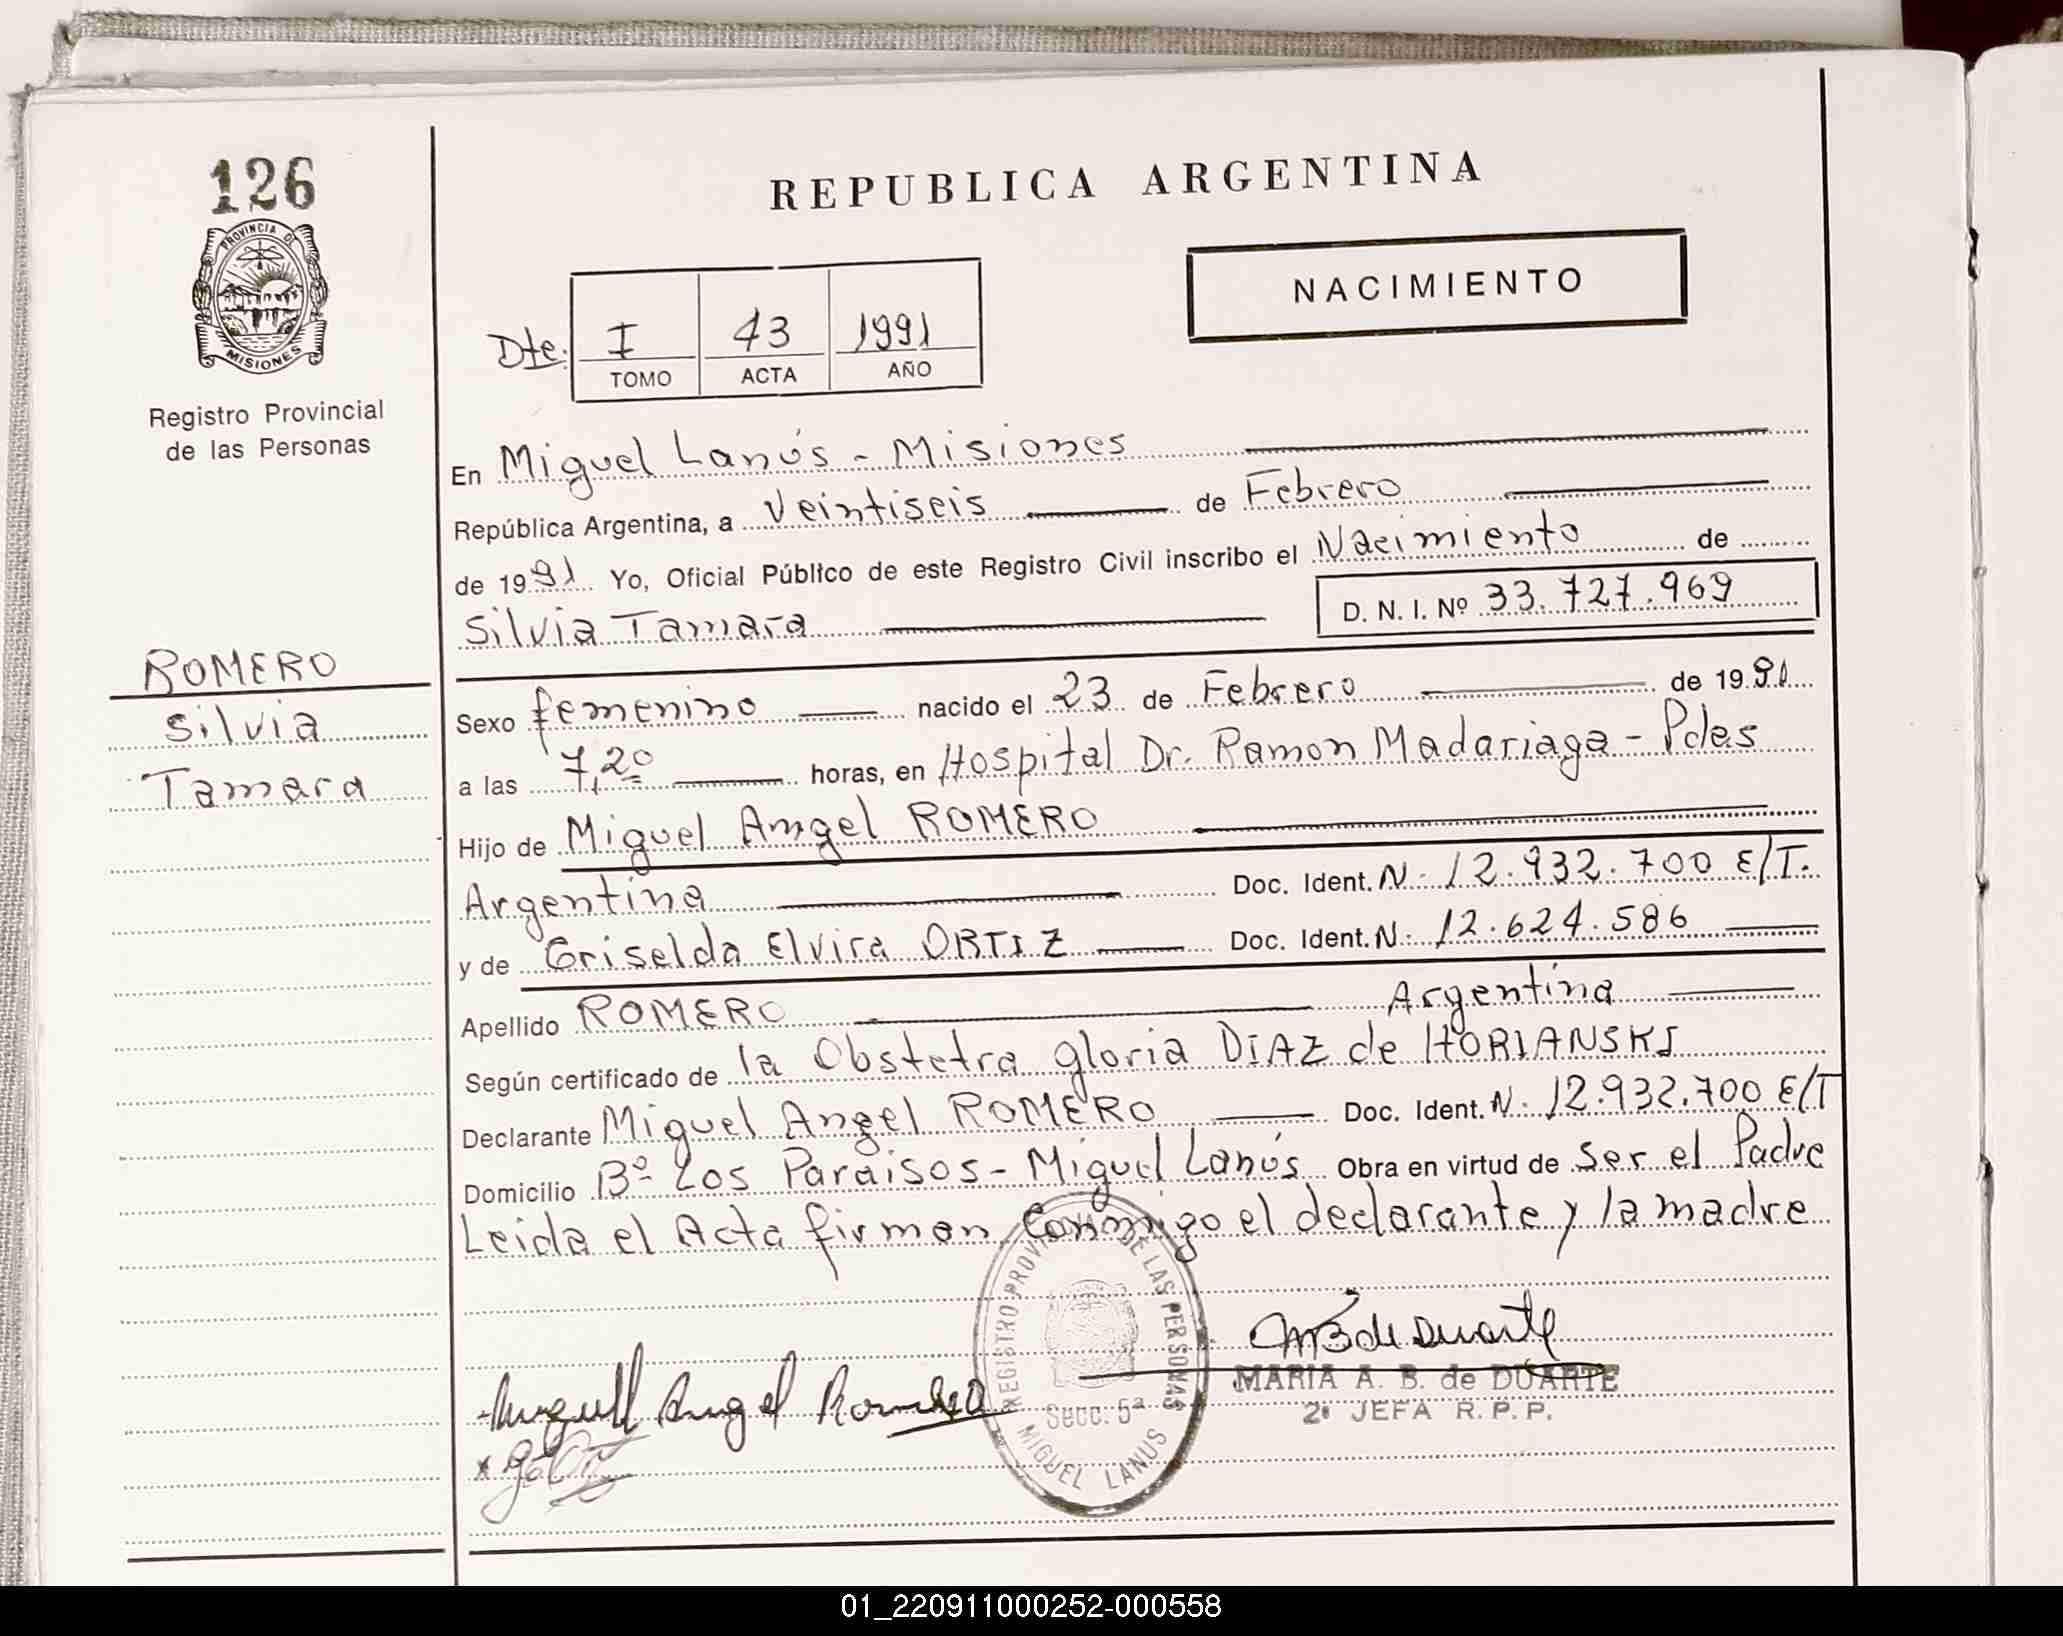 126
REPUBLICA ARGENTINA
PROVINCIA DE
MISIONES
Registro Provincial
de las Personas
NACIMIENTO
Dte. I 43 1991
TOMO ACTA AÑO
En Miguel Lanús - Misiones
República Argentina, a Veintiseis de Febrero
de 1991 Yo, Oficial Público de este Registro Civil inscribo el Nacimiento de
Silvia Tamara D. N. I. Nº 33.727.969
ROMERO
Silvia
Tamara
Sexo femenino nacido el 23 de Febrero de 1991
a las 7,20 horas, en Hospital Dr. Ramon Madariaga - Pdas
Hijo de Miguel Angel ROMERO
Argentina Doc. Ident. N. 12.932.700 E/T.
y de Griselda Elvira ORTIZ Doc. Ident. N. 12.624.586
Apellido ROMERO Argentina
Según certificado de la Obstetra gloria DIAZ de HORIANSKI
Declarante Miguel Angel ROMERO Doc. Ident. N. 12.932.700 E/T
Domicilio Bº Los Paraisos - Miguel Lanús Obra en virtud de Ser el Padre
Leida el Acta firman Conmigo el declarante y la madre
REGISTRO PROVINCIAL DE LAS PERSONAS
Secc. 5ª
MIGUEL LANUS
Miguel Angel Romero
MB de Duarte
MARIA A. B. de DUARTE
2ª JEFA R. P. P.
01_220911000252-000558